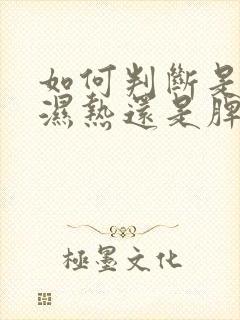 如何判斷是
濕熱還是脾
極墨文化